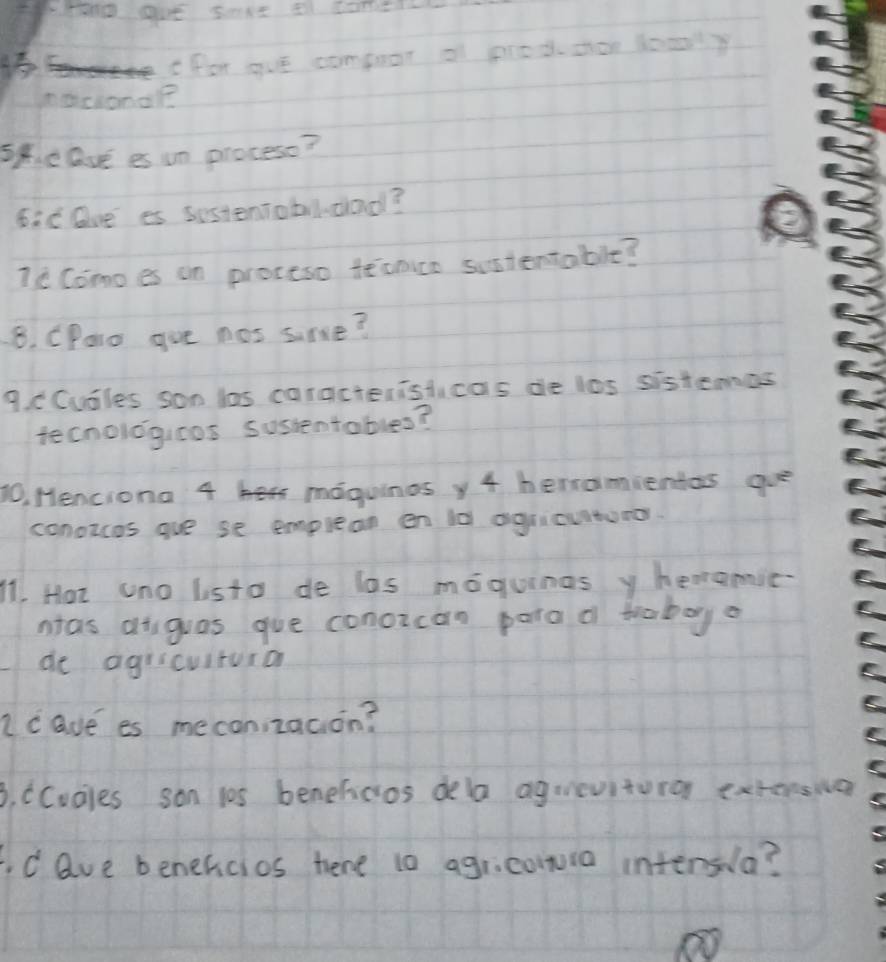 que sirve el
¿Por qué comprar al productor local y
nacional?
5. ¿Qué es un proceso?
6. ¿Qué es sustentabilidad?
7 ¿Cómo es un proceso técnico sustentable?
8. ¿Para que nos sirve?
9. ¿Cuáles son las características de los sistemas
tecnológicos sustentables?
10. Menciona 4 máquinas y 4 herramientas que
conozcas que se emplean en la agricultura.
11. Haz una lista de las máquinas y herramie-
ntas atiguas que conozcan para el trabajo
de agricultura
2 ¿Qué es mecanización?
3. ¿Cuáles son los beneficios de la agricultura extensiva
¿Que beneficios tiene la agricultura intensiva?